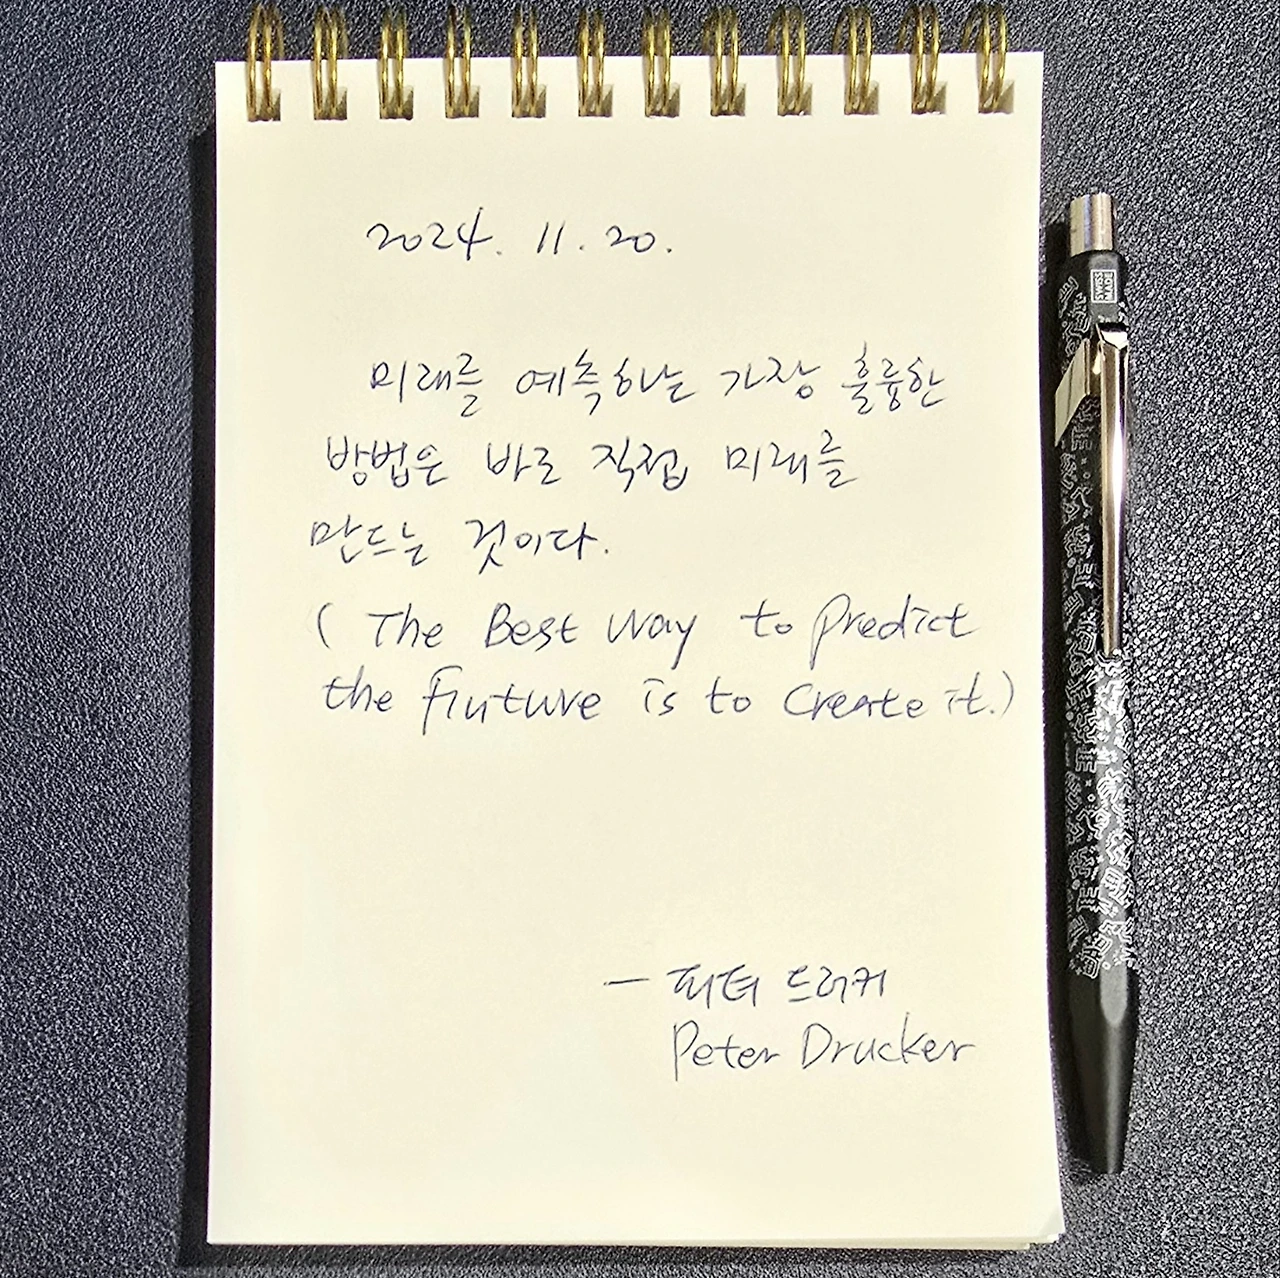 2024. 11. 20.
미래를 예측하는 가장 훌륭한
방법은 바로 직접 미래를
만드는 것이다.
( The Best way to predict
the fiuture is to create it.)
— 피터 드러커
Peter Drucker